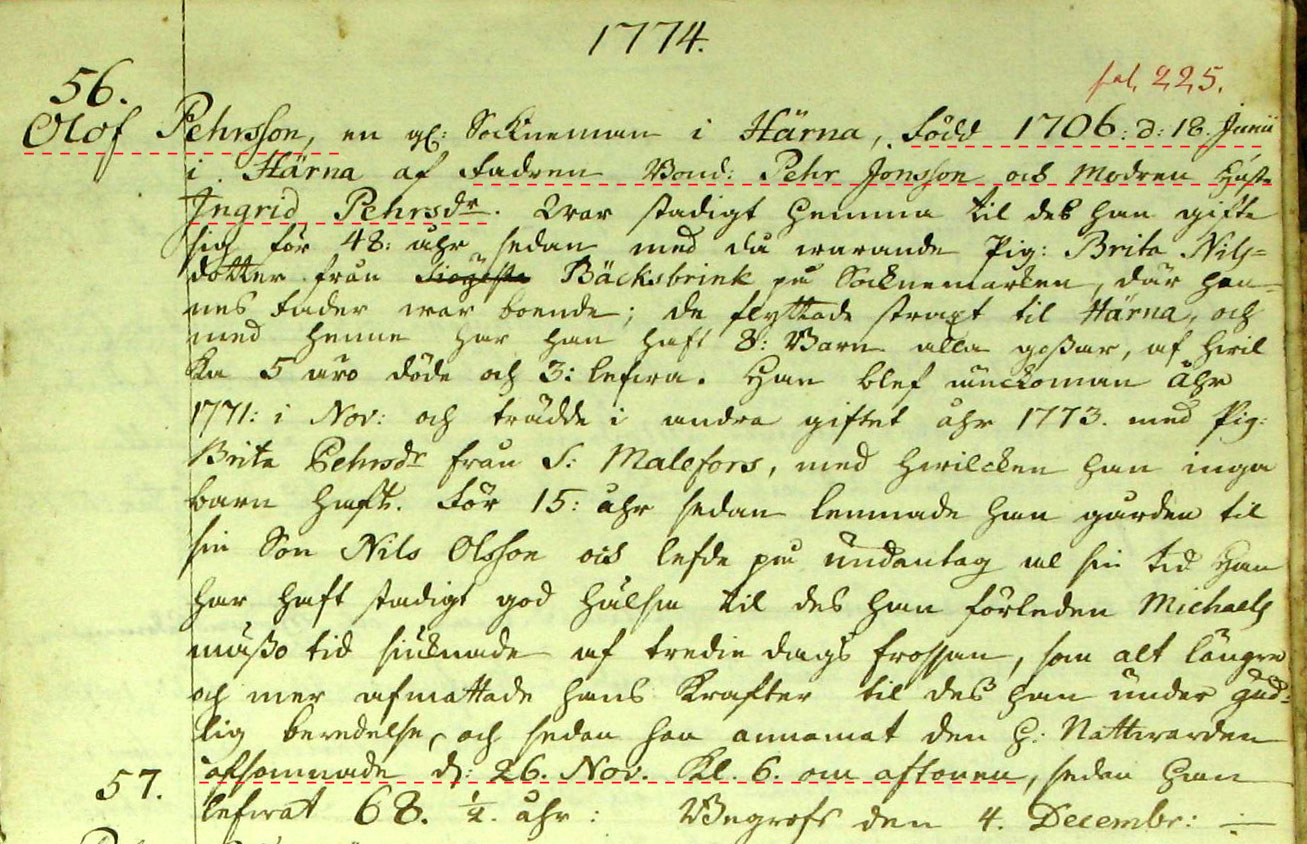 1774.
fol. 225.
56.
Olof Pehrsson, en gl: Sockneman i Härna, Född 1706: d: 18. Junii
i Härna af Fadren Bond: Pehr Jonsson och Modren Hust
Ingrid Pehrsdr. War stadigt hemma til des han gifte
sig för 48: åhr sedan med då warande Pig: Brita Nils=
dotter från Bäcksbrink på Socknemarken, där hen=
nes Fader war boende; de flyttade straxt til Härna, och
med henne har han haft 8: Barn alla gossar, af hwil
ka 5 äro döde och 3: lefwa. Han blef änckoman Åhr
1771: i Nov: och trädde i andra giftet åhr 1773. med Pig:
Brita Pehrsdr från S: Malefors, med hwilcken han inga
barn haft. För 15: åhr sedan lemnade han gården til
sin Son Nils Olsson och lefde på undantag al sin tid Han
har haft stadigt god hälsa til des han förleden Michaels
mässo tid siuknade af tredie dags frossan, som alt längre
och mer afmattade hans Krafter til des han under gud=
lig beredelse, och sedan han annamat den H: Nattwarden
afsomnade d: 26. Nov. Kl. 6. om aftonen, sedan han
57.
lefwat 68. 1/2. åhr: Begrofs den 4. Decembr: